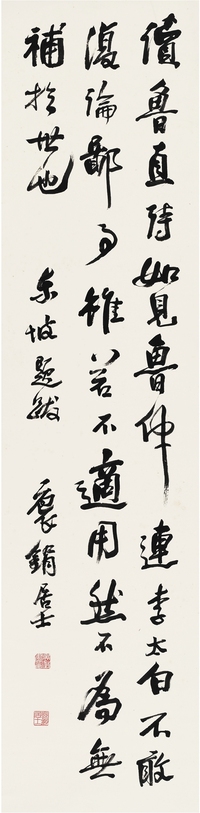 讀魯直詩如見魯仲連李太白不敢
復論鄙事雖若不適用然不為無
補於世也
東坡題跋
居士